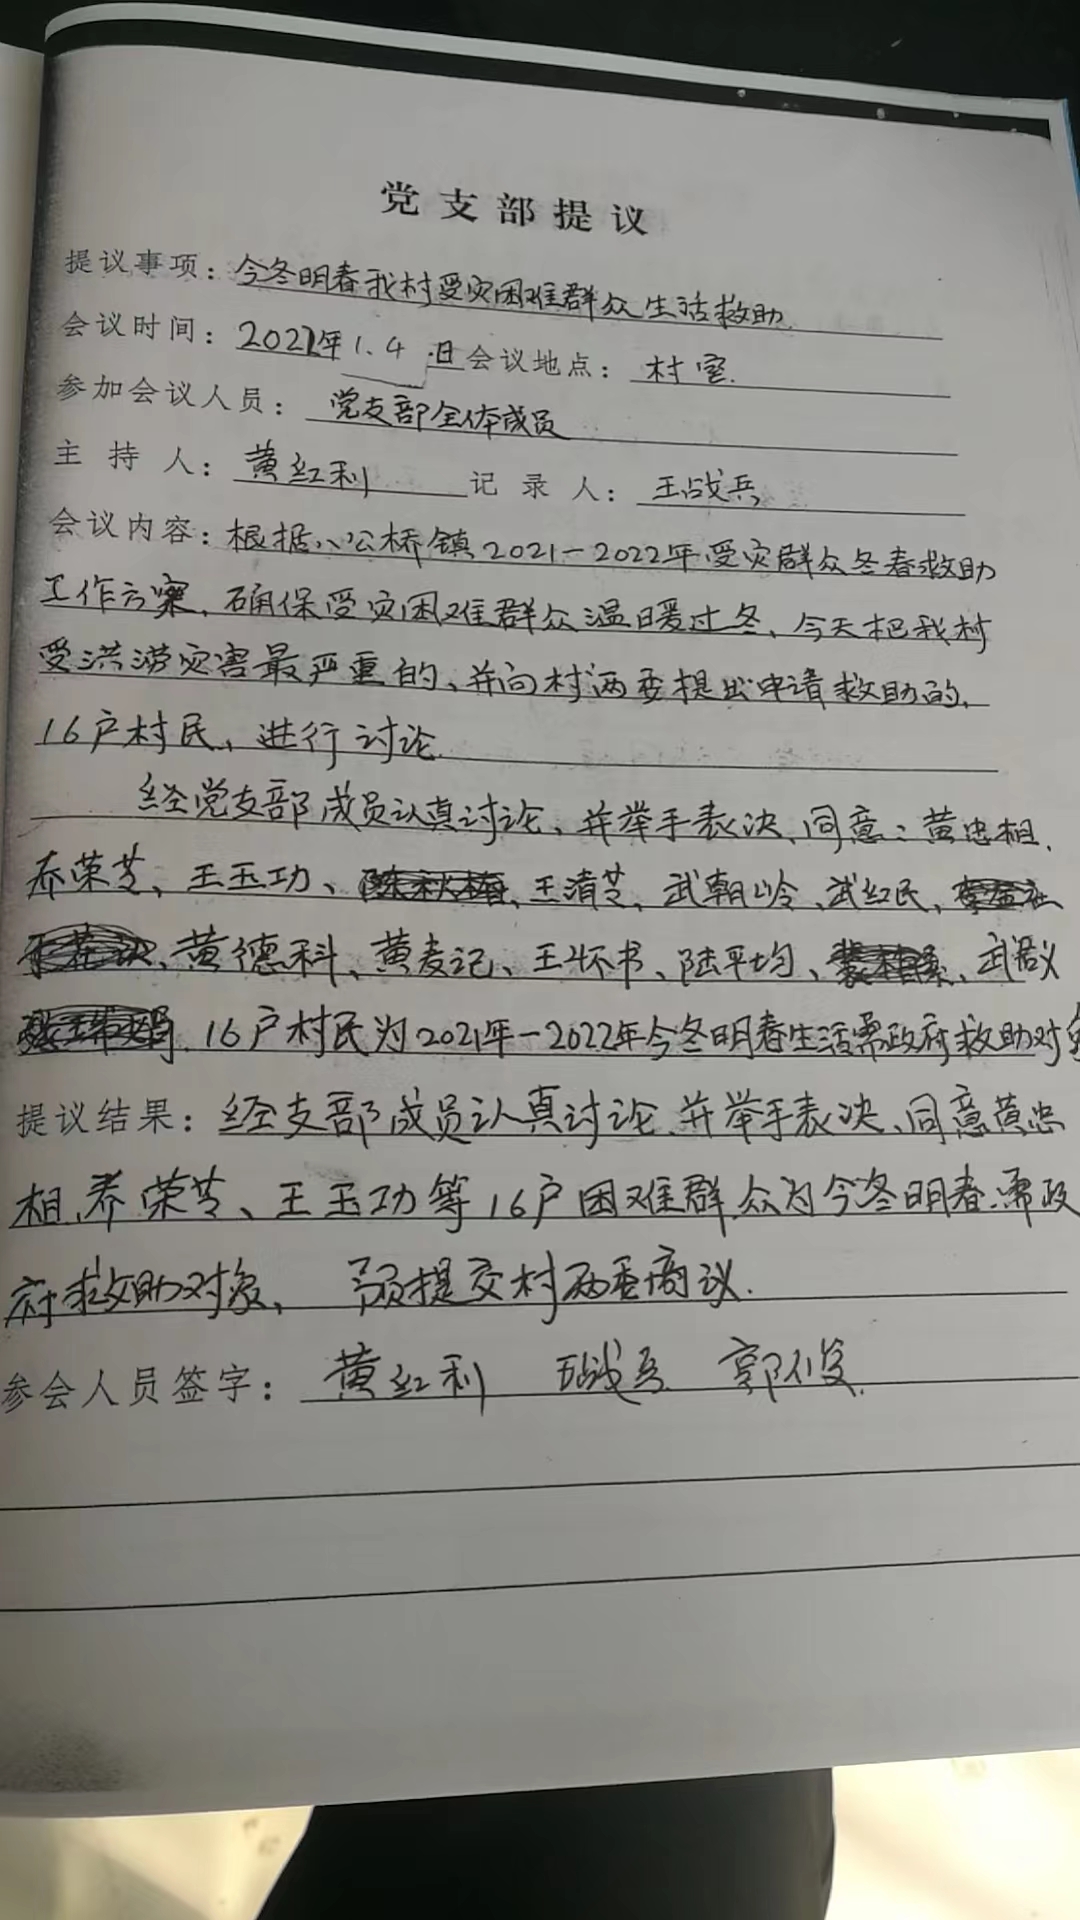 党支部提议
提议事项：今冬明春我村受灾困难群众生活救助.
会议时间：2022年1.4.日会议地点：村室.
参加会议人员：党支部全体成员
主持人：黄红利 记录人：王战兵
会议内容：根据八公桥镇2021—2022年受灾群众冬春救助
工作方案、确保受灾困难群众温暖过冬、今天把我村
受洪涝灾害最严重的、并向村两委提出申请救助的、
16户村民、进行讨论.
经党支部成员认真讨论、并举手表决、同意：黄忠相、
乔荣芝、王玉功、王清芝、武朝岭、武红民、
黄德科、黄麦记、王怀书、陆平均、武
16户村民为2021年—2022年今冬明春生活需政府救助对象
提议结果：经支部成员认真讨论、并举手表决、同意黄忠
相、乔荣芝、王玉功等16户困难群众为今冬明春需政
府救助对象、 提交村两委商议.
参会人员签字：黄红利 王战兵 郭俊